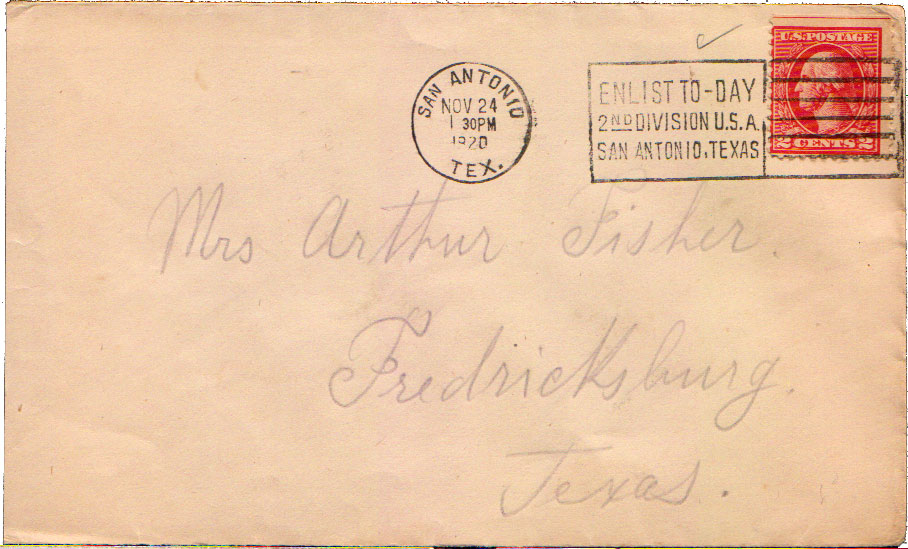 SAN ANTONIO
NOV 24
1 30PM
1920
TEX.
ENLIST TO-DAY
2ND DIVISION U.S.A.
SAN ANTONIO, TEXAS
U.S. POSTAGE
2 CENTS 2
Mrs Arthur Fisher.
Fredricksburg.
Texas.